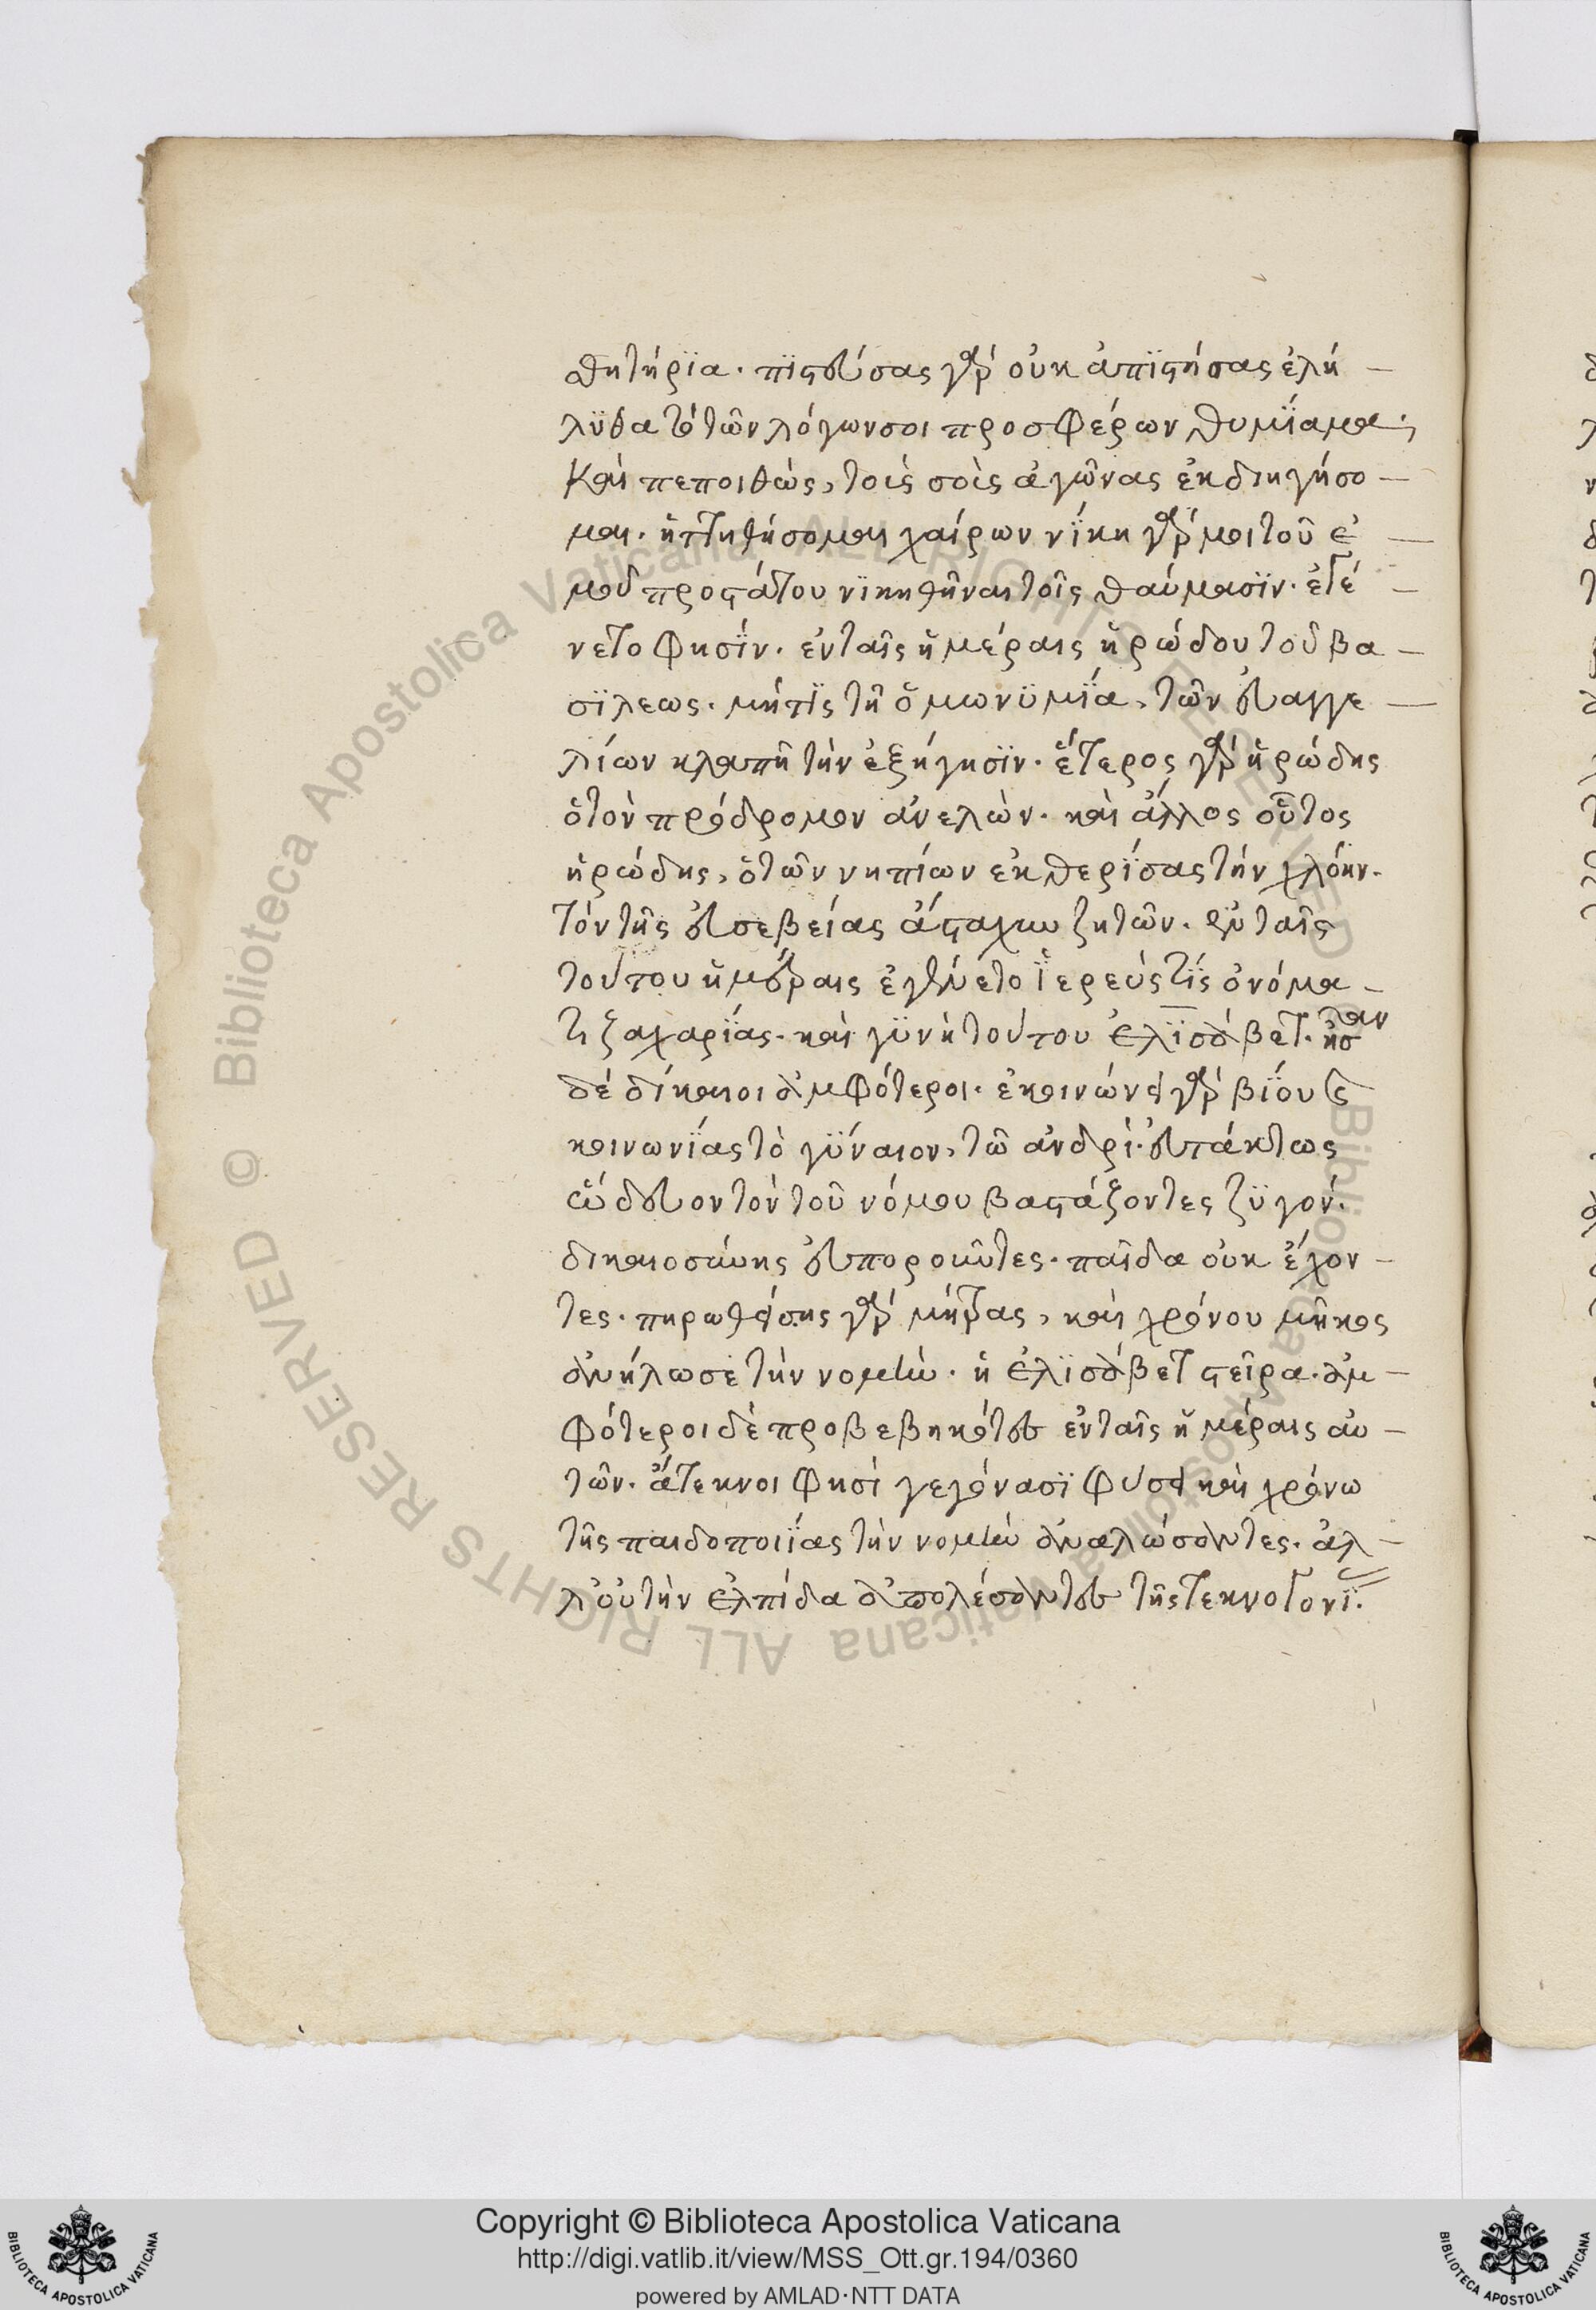 θητήρϊα. πϊστεύσας γὰρ οὐκ ἀπϊστήσας ἐλή-
λϋθα τὸ τῶν λόγων σοι προσφέρων θυμΐαμα,
καὶ πεποιθὼς, τοὶς σοὶς ἀγῶνας ἐκδιηγήσο-
μαι. ἡττηθήσομαι χαίρων νΐκη γὰρ μοι τοῦ ἐ-
μοῦ προστάτου νϊκηθῆναι τοῖς θαύμασϊν. ἐγέ-
νετο φησΐν. ἐν ταῖς ἡμέραις ἡρώδου τοῦ βα-
σϊλεως. μήτϊς τῆ ὁμωνϋμΐα, τῶν εὐαγγε-
λίων κλαπῆ τὴν ἐξήγησϊν. ἕτερος γὰρ ἡρώδης
ὁ τὸν πρόδρομον ἀνελὼν. καὶ ἄλλος οὗτος
ἡρώδης, ὁ τῶν νηπίων ἐκθερΐσας τήν χλόην.
τόν τῆς εὐσεβείας ἄσταχυν ζητῶν. ἐν ταῖς
τούτου ἡμέραις ἐγένετο ϊερεύς τΐς ὀνόμα-
τι ζαχαρΐας. καὶ γϋνὴ τούτου ἐλϊσάβετ. ἦσαν
δέ δίκαιοι ἀμφότεροι. ἐκοινώνει γὰρ βΐου τῆς
κοινωνΐας τὸ γΰναιον, τῶ ἀνδρὶ. εὐτάκτως
ὥδευον τὸν τοῦ νόμου βαστάζοντες ζϋγόν.
δικαιοσύνης εὐποροῦντες. παῖδα οὐκ ἔχον-
τες. πηρωθείσης γὰρ μήτρας, καὶ χρόνου μῆκος
ἀνήλωσε τὴν νομὴν. ἡ ἐλϊσάβετ στεῖρα. ἀμ-
φότεροι δὲ προβεβηκότες ἐν ταῖς ἡμέραις αὐ-
τῶν. ἄτεκνοι φησὶ γεγόνασϊ φύσει καὶ χρόνω
τῆς παιδοποιΐας τὴν νομὴν ἀναλώσαντες. ἀλ-
λ' οὐ τὴν ἐλπίδα ἀπολέσαντες τῆς τεκνογονΐ.
Copyright © Biblioteca Apostolica Vaticana
http://digi.vatlib.it/view/MSS_Ott.gr.194/0360
powered by AMLAD·NTT DATA